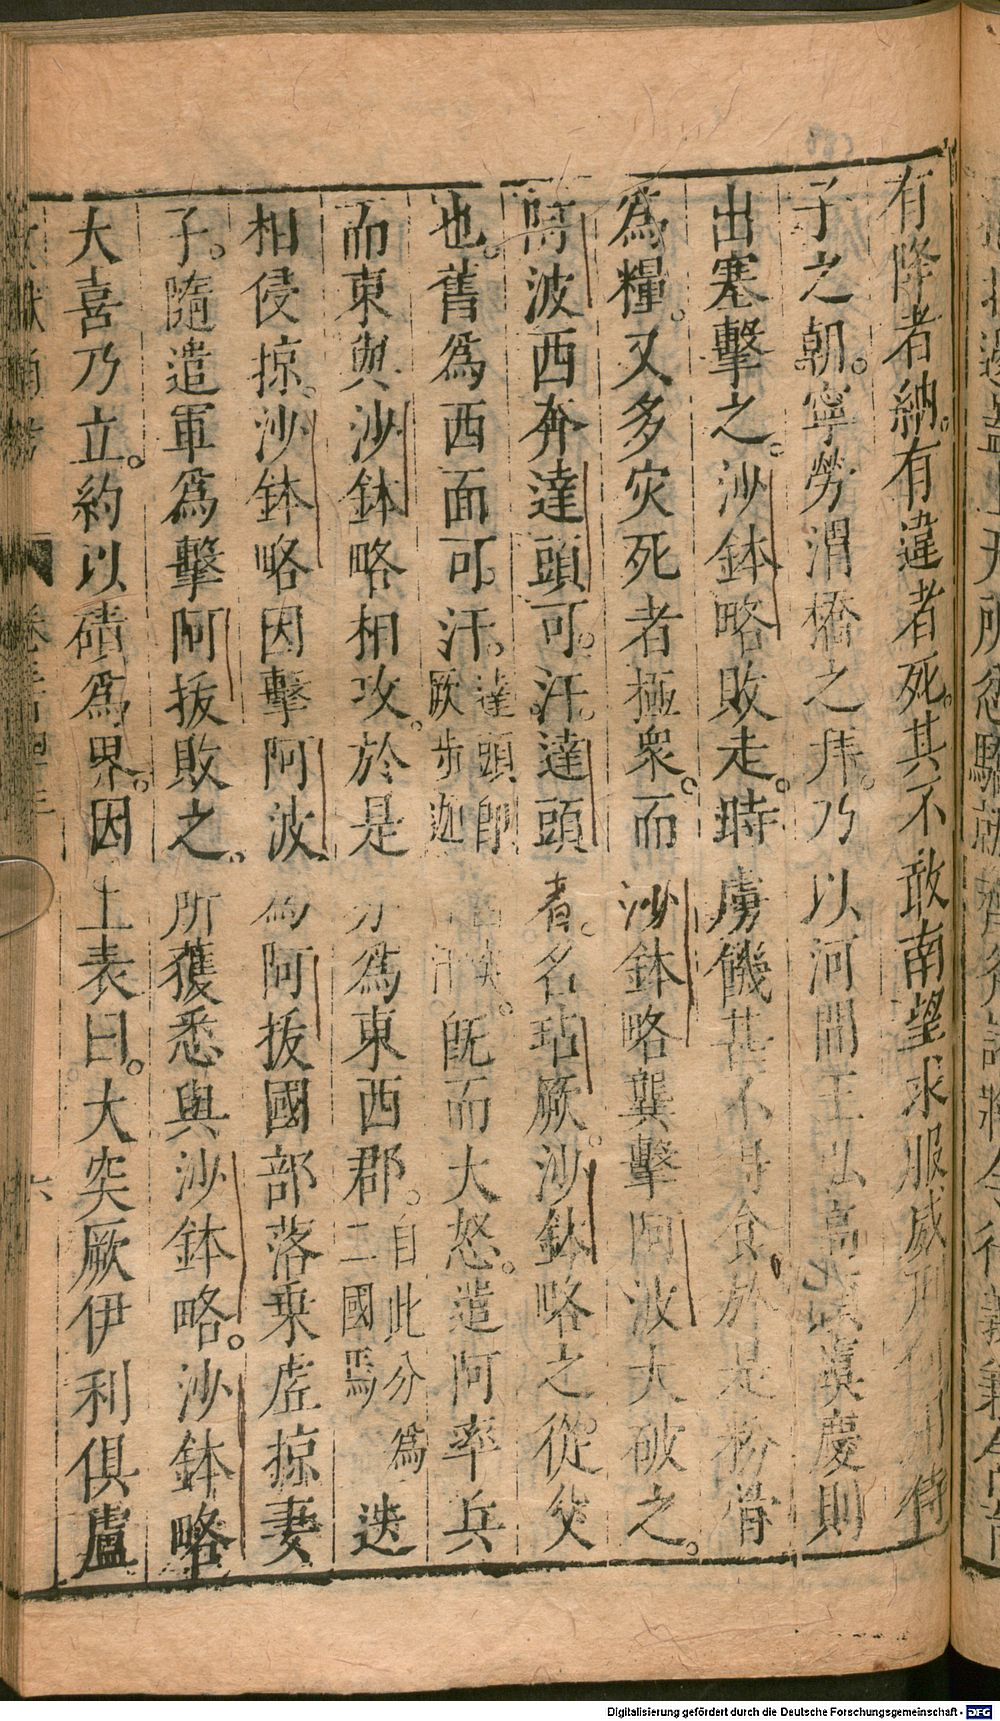 有降者納有違者死其不敢南望求服威刑何用侍
子之朝寧勞渭橋之拜乃以河間王弘高熲虞慶則
出塞擊之沙鉢略敗走時虜饑甚不得食於是粉骨
爲糧又多灾死者極衆而沙鉢略龔擊阿波大破之
阿波西奔達頭可汗達頭者名玷厥沙鉢略之從父
也舊爲西面可汗達頭即
厥步迦
既而大怒遣阿率兵
而東與沙鉢略相攻於是分爲東西郡自此分爲
二國焉
迭
相侵掠沙鉢略因擊阿波爲阿拔國部落乗虚掠妻
子隨遣軍爲擊阿拔敗之所獲悉與沙鉢略沙鉢略
大喜乃立約以磧爲界因上表曰大突厥伊利俱盧
六
Digitalisierung gefördert durch die Deutsche Forschungsgemeinschaft - DFG